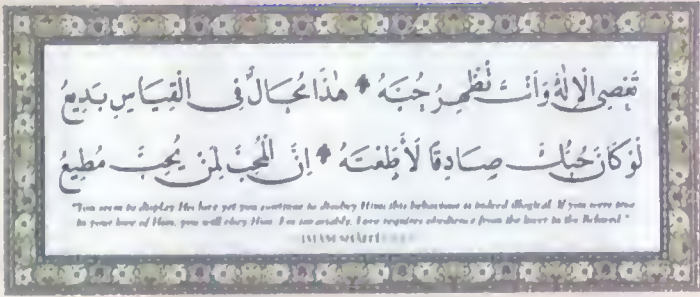 تَعْصِى الْاِلٰهَ وَأَنْتَ تُظْهِرُ حُبَّهُ ◆ هٰذَا مُحَالٌ فِى الْقِيَاسِ بَدِيعُ
لَوْ كَانَ حُبُّكَ صَادِقًا لَأَطَعْتَهُ ◆ اِنَّ الْمُحِبَّ لِمَنْ يُحِبُّ مُطِيعُ
"You seem to display His love yet you continue to disobey Him; this behaviour is indeed illogical. If you were true
in your love of Him, you will obey Him. For invariably, Love requires obedience from the lover to the Beloved."